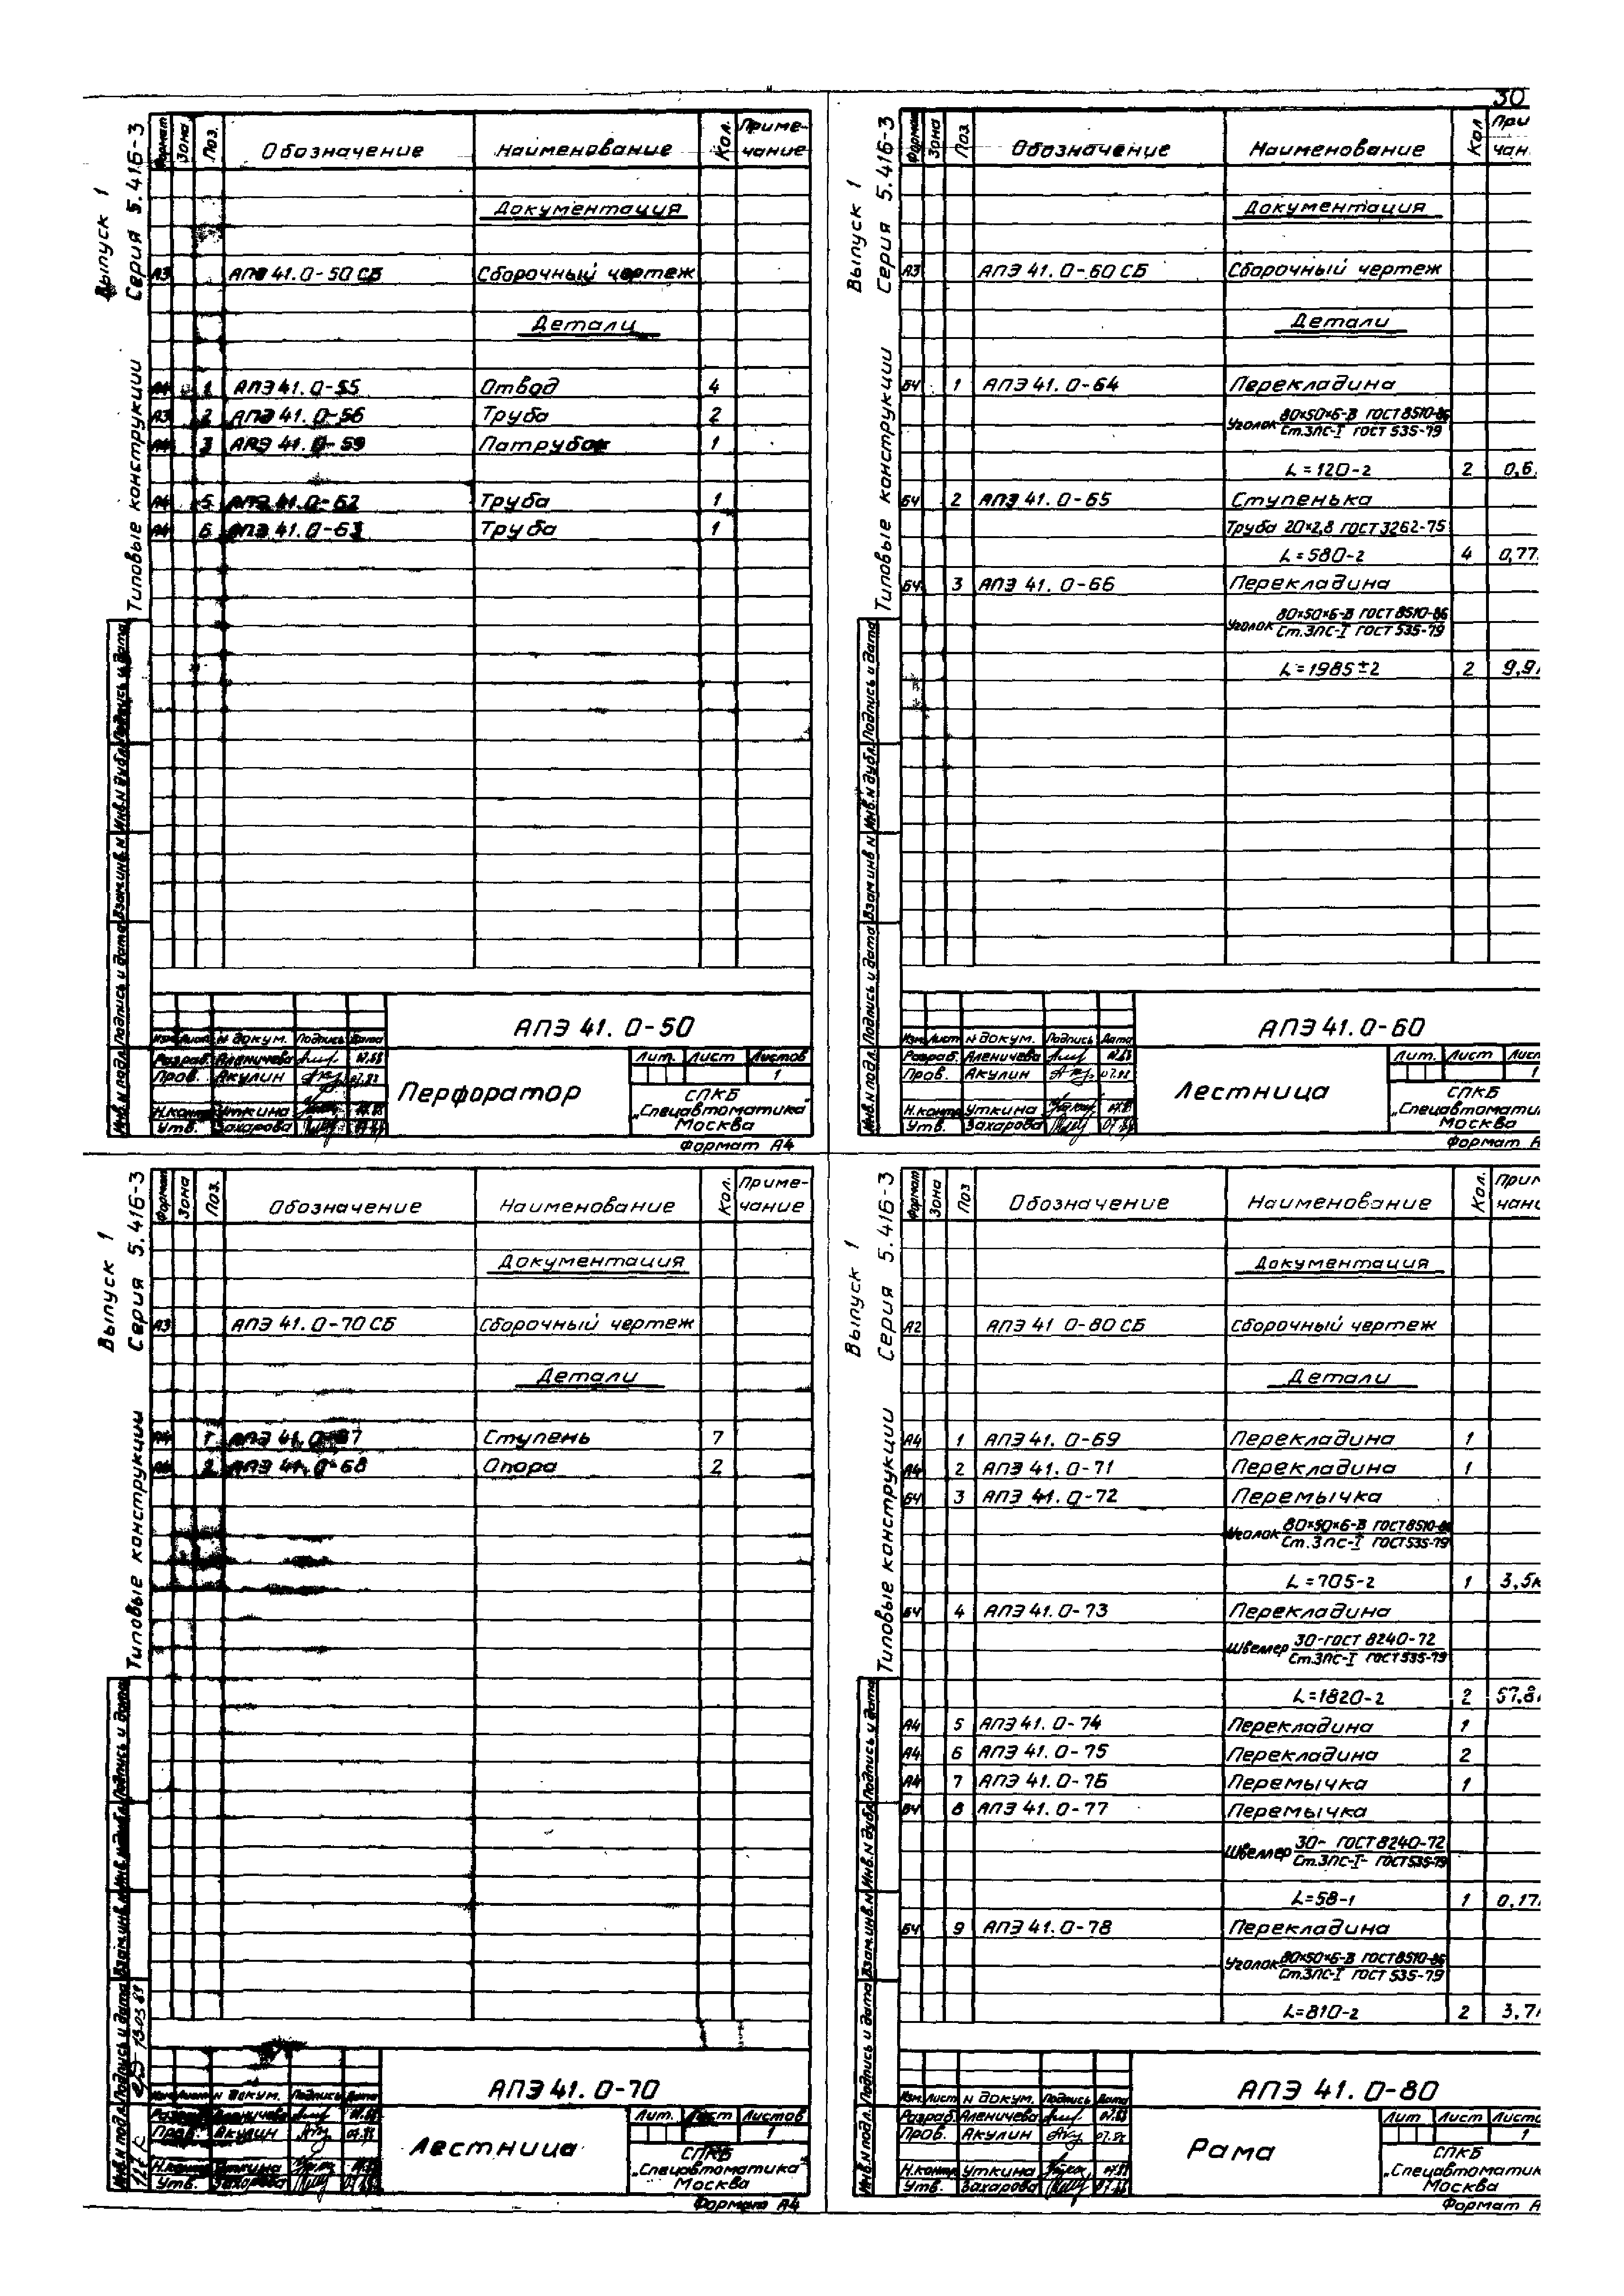 30
Выпуск 1
Серия 5.416-3
Типовые конструкции
Формат Зона Поз. Обозначение Наименование Кол. Приме-
чание
Документация
А3 АПЭ 41.0-50 СБ Сборочный чертеж
Детали
А4 1 АПЭ 41.0-55 Отвод 4
А3 2 АПЭ 41.0-56 Труба 2
А4 3 АПЭ 41.0-59 Патрубок 1
А4 5 АПЭ 41.0-62 Труба 1
А4 6 АПЭ 41.0-63 Труба 1
Инв.N подл. Подпись и дата Взам.инв N Инв.N дубл. Подпись и дата
АПЭ 41.0-50
Изм Лист N докум. Подпись Дата
Разраб. Аленичева
Пров. Акулин 07.88
Н.контр Уткина
Утв. Захарова
Перфоратор
Лит. Лист Листов
1
СПКБ
„Спецавтоматика"
Москва
Формат А4
Выпуск 1
Серия 5.416-3
Типовые конструкции
Формат Зона Поз Обозначение Наименование Кол При
чан.
Документация
А3 АПЭ 41.0-60 СБ Сборочный чертеж
Детали
БЧ 1 АПЭ 41.0-64 Перекладина
Уголок 80×50×6-В ГОСТ 8510-86
Ст.3ПС-I ГОСТ 535-79
L=120-2 2 0,6
БЧ 2 АПЭ 41.0-65 Ступенька
Труба 20×2,8 ГОСТ 3262-75
L=580-2 4 0,77
БЧ 3 АПЭ 41.0-66 Перекладина
Уголок 80×50×6-В ГОСТ 8510-86
Ст.3ПС-I ГОСТ 535-79
L=1985±2 2 9,9
Инв.N подл. Подпись и дата Взам инв N Инв.N дубл. Подпись и дата
АПЭ 41.0-60
Изм Лист N докум. Подпись Дата
Разраб. Аленичева
Пров. Акулин 07.88
Н.контр Уткина
Утв. Захарова
Лестница
Лит. Лист Лист
1
СПКБ
„Спецавтомати
Москва
Формат А
Выпуск 1
Серия 5.416-3
Типовые конструкции
Формат Зона Поз. Обозначение Наименование Кол. Приме-
чание
Документация
А3 АПЭ 41.0-70 СБ Сборочный чертеж
Детали
А4 1 АПЭ 41.0-67 Ступень 7
А4 2 АПЭ 41.0-68 Опора 2
Инв.N подл. Подпись и дата Взам.инв.N Инв.N дубл. Подпись и дата
АПЭ 41.0-70
Изм Лист N докум. Подпись Дата
Разраб. Аленичева
Пров. Акулин 07.88
Н.контр Уткина
Утв. Захарова
Лестница
Лит. Лист Листов
1
СПКБ
„Спецавтоматика"
Москва
Формат А4
Выпуск 1
Серия 5.416-3
Типовые конструкции
Формат Зона Поз Обозначение Наименование Кол. Прим
чани
Документация
А2 АПЭ 41 0-80 СБ Сборочный чертеж
Детали
А4 1 АПЭ 41.0-69 Перекладина 1
А4 2 АПЭ 41.0-71 Перекладина 1
БЧ 3 АПЭ 41.0-72 Перемычка
Уголок 80×50×6-В ГОСТ 8510-86
Ст.3ПС-I ГОСТ 535-79
L=705-2 1 3,5к
БЧ 4 АПЭ 41.0-73 Перекладина
Швеллер 30-ГОСТ 8240-72
Ст.3ПС-I ГОСТ 535-79
L=1820-2 2 57,8
А4 5 АПЭ 41.0-74 Перекладина 1
А4 6 АПЭ 41.0-75 Перекладина 2
А4 7 АПЭ 41.0-76 Перемычка 1
БЧ 8 АПЭ 41.0-77 Перемычка
Швеллер 30- ГОСТ 8240-72
Ст.3ПС-I- ГОСТ 535-79
L=58-1 1 0,17
БЧ 9 АПЭ 41.0-78 Перекладина
Уголок 80×50×6-В ГОСТ 8510-86
Ст.3ПС-I ГОСТ 535-79
L=810-2 2 3,7
Инв.N подл. Подпись и дата Взам.инв.N Инв.N дубл Подпись и дата
АПЭ 41.0-80
Изм. Лист N докум. Подпись Дата
Разраб. Аленичева 07.88
Пров. Акулин 07.88
Н.контр Уткина
Утв. Захарова
Рама
Лит Лист Листо
1
СПКБ
„Спецавтоматик
Москва
Формат А